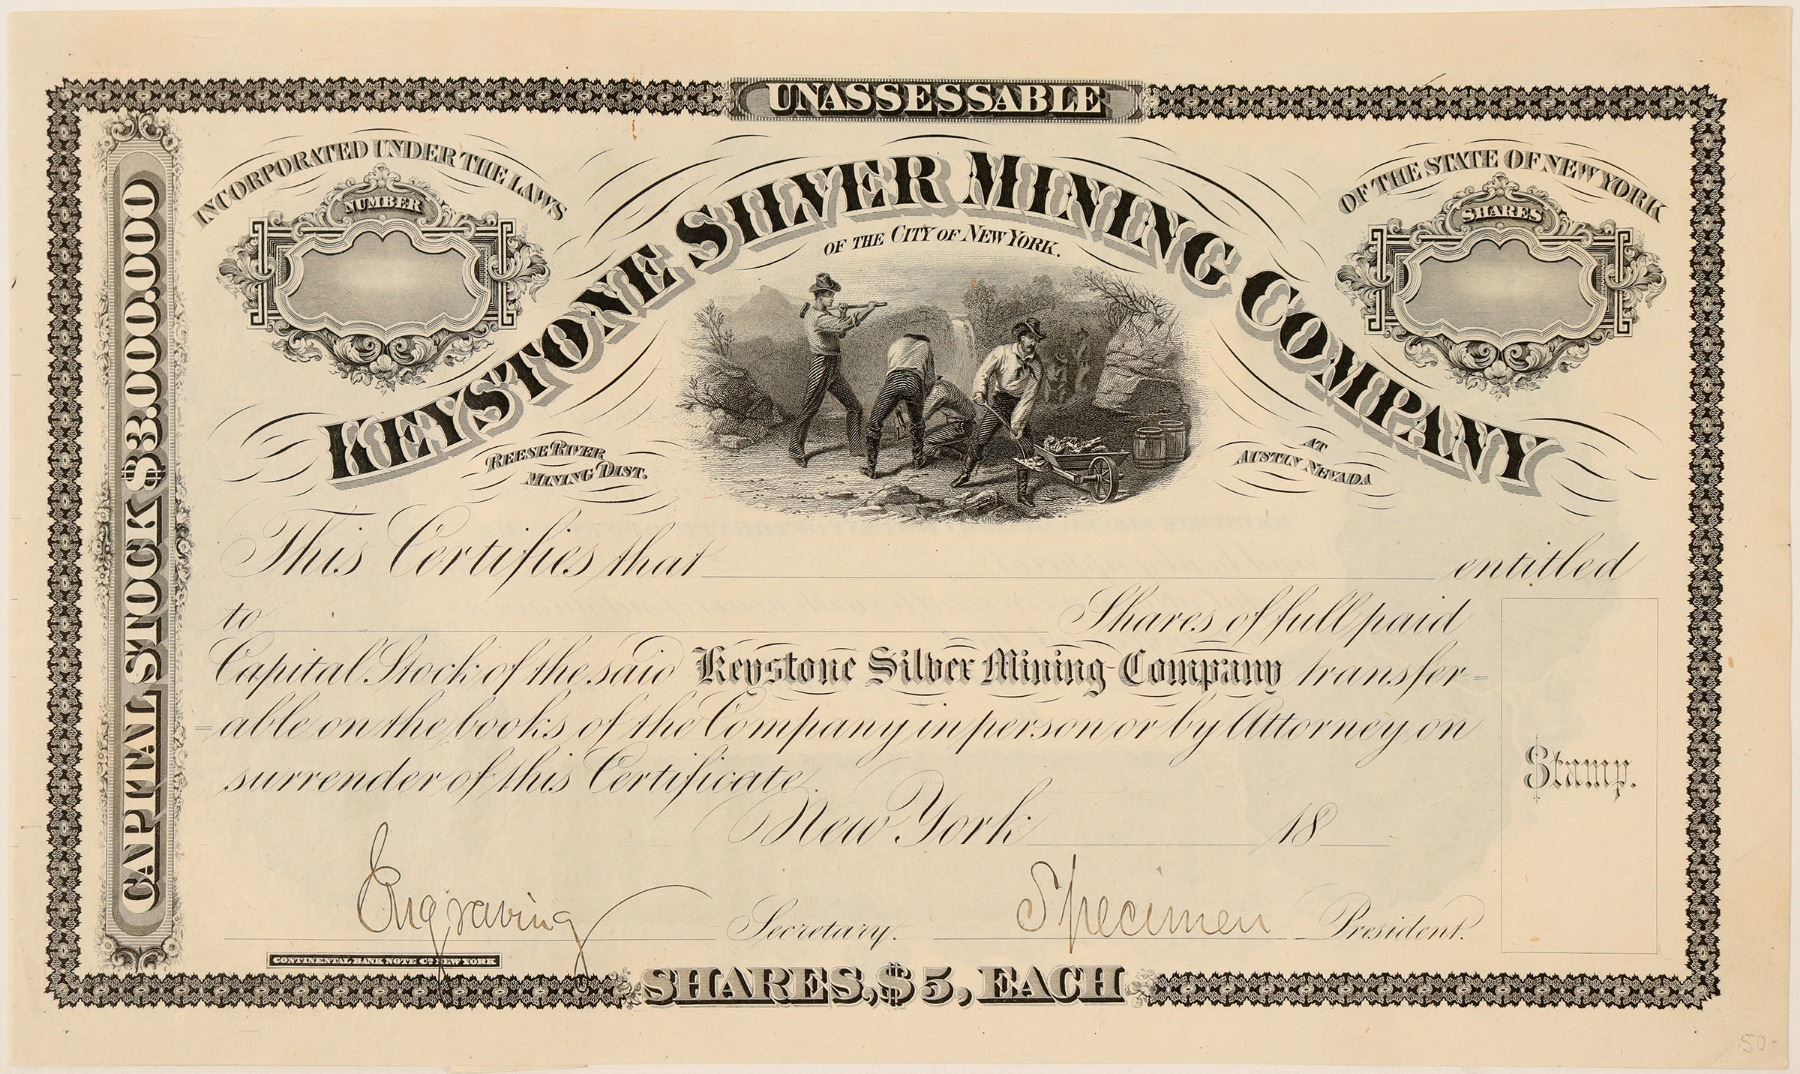 UNASSESSABLE
INCORPORATED UNDER THE LAWS
OF THE STATE OF NEW YORK
NUMBER
SHARES
KEYSTONE SILVER MINING COMPANY
OF THE CITY OF NEW YORK.
REESE RIVER
MINING DIST.
AT
AUSTIN NEVADA
CAPITAL STOCK $3.000.000
This Certifies that entitled
to Shares of full paid
Capital Stock of the said Keystone Silver Mining Company transfer=
=able on the books of the Company in person or by Attorney on
surrender of this Certificate.
New York 18
Stamp.
Engraving Secretary. Specimen President.
CONTINENTAL BANK NOTE CO. NEW YORK
SHARES, $5, EACH
50-